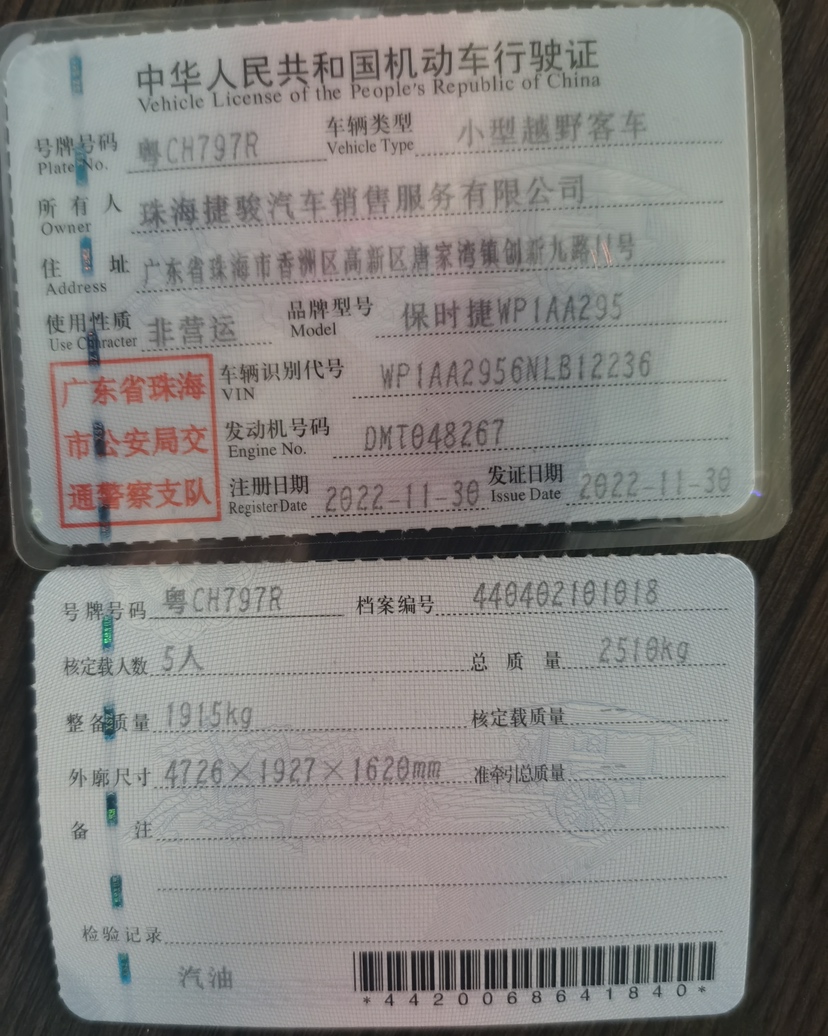 中华人民共和国机动车行驶证
Vehicle License of the People's Republic of China
号牌号码 粤CH797R 车辆类型 小型越野客车
Plate No. Vehicle Type
所有人 珠海捷骏汽车销售服务有限公司
Owner
住址 广东省珠海市香洲区高新区唐家湾镇创新九路11号
Address
使用性质 非营运 品牌型号 保时捷WP1AA295
Use Character Model
车辆识别代号 WP1AA2956NLB12236
VIN
发动机号码 DMT048267
Engine No.
注册日期 2022-11-30 发证日期 2022-11-30
Register Date Issue Date
广东省珠海
市公安局交
通警察支队
号牌号码 粤CH797R 档案编号 440402101018
核定载人数 5人 总质量 2510kg
整备质量 1915kg 核定载质量
外廓尺寸 4726×1927×1620mm 准牵引总质量
备注
检验记录
汽油
*4420068641840*